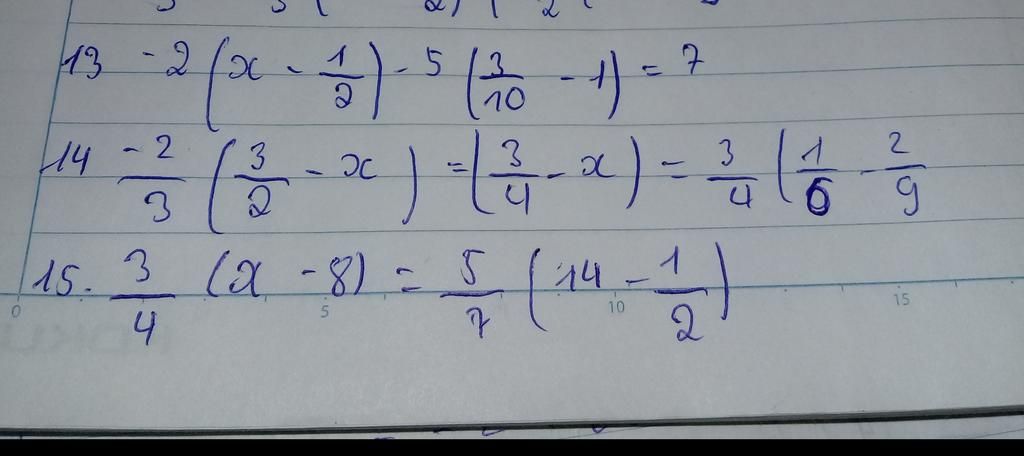 13 -2 (x - 1/2) - 5 (3/10 - 1) = 7
14 -2/3 (3/2 - x) = (3/4 - x) = 3/4 (1/6 - 2/9
15. 3/4 (x - 8) = 5/7 (14 - 1/2)
0 5 10 15